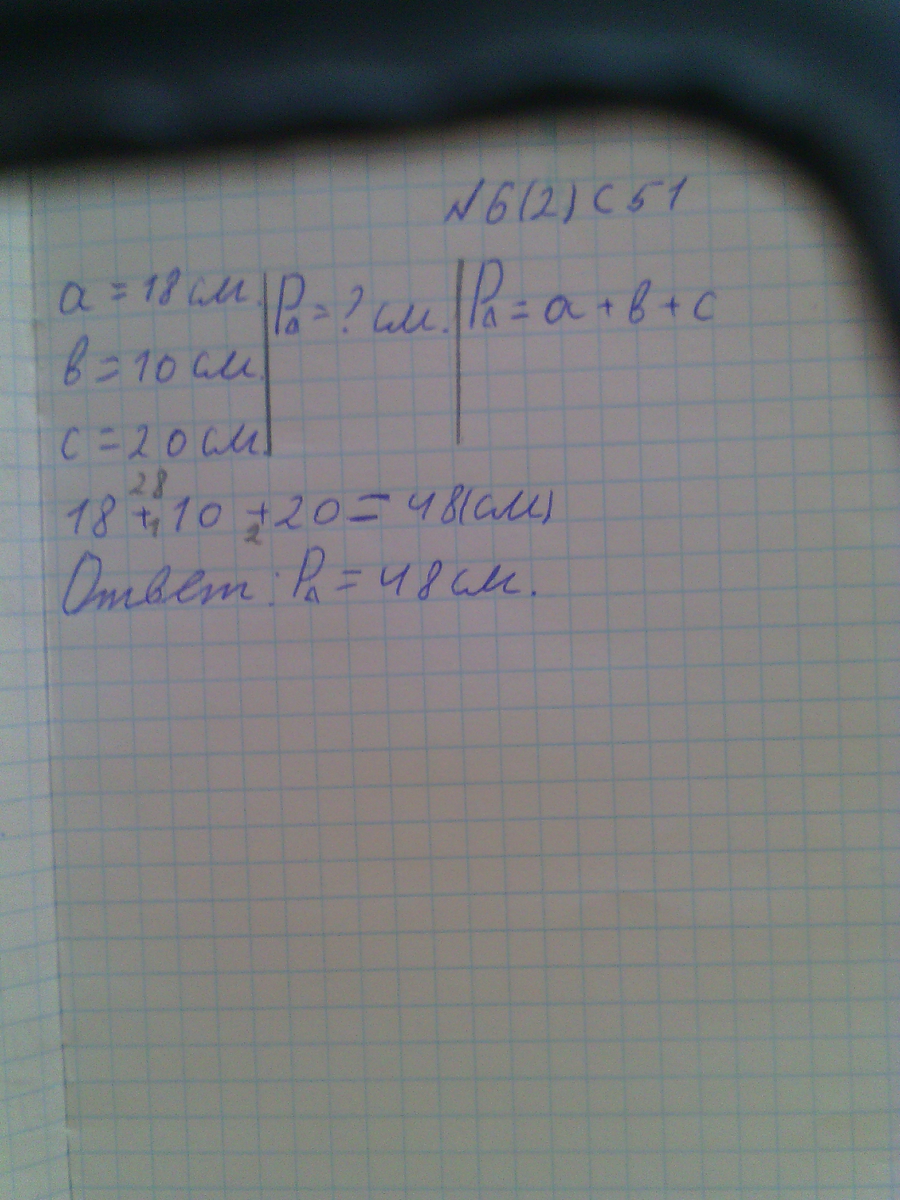 №6(2) с 51
a = 18 см. | P△ = ? см. | P△ = a + b + c
b = 10 см.
c = 20 см.
28
18 + 10 + 20 = 48(см)
1 2
Ответ: P△ = 48 см.